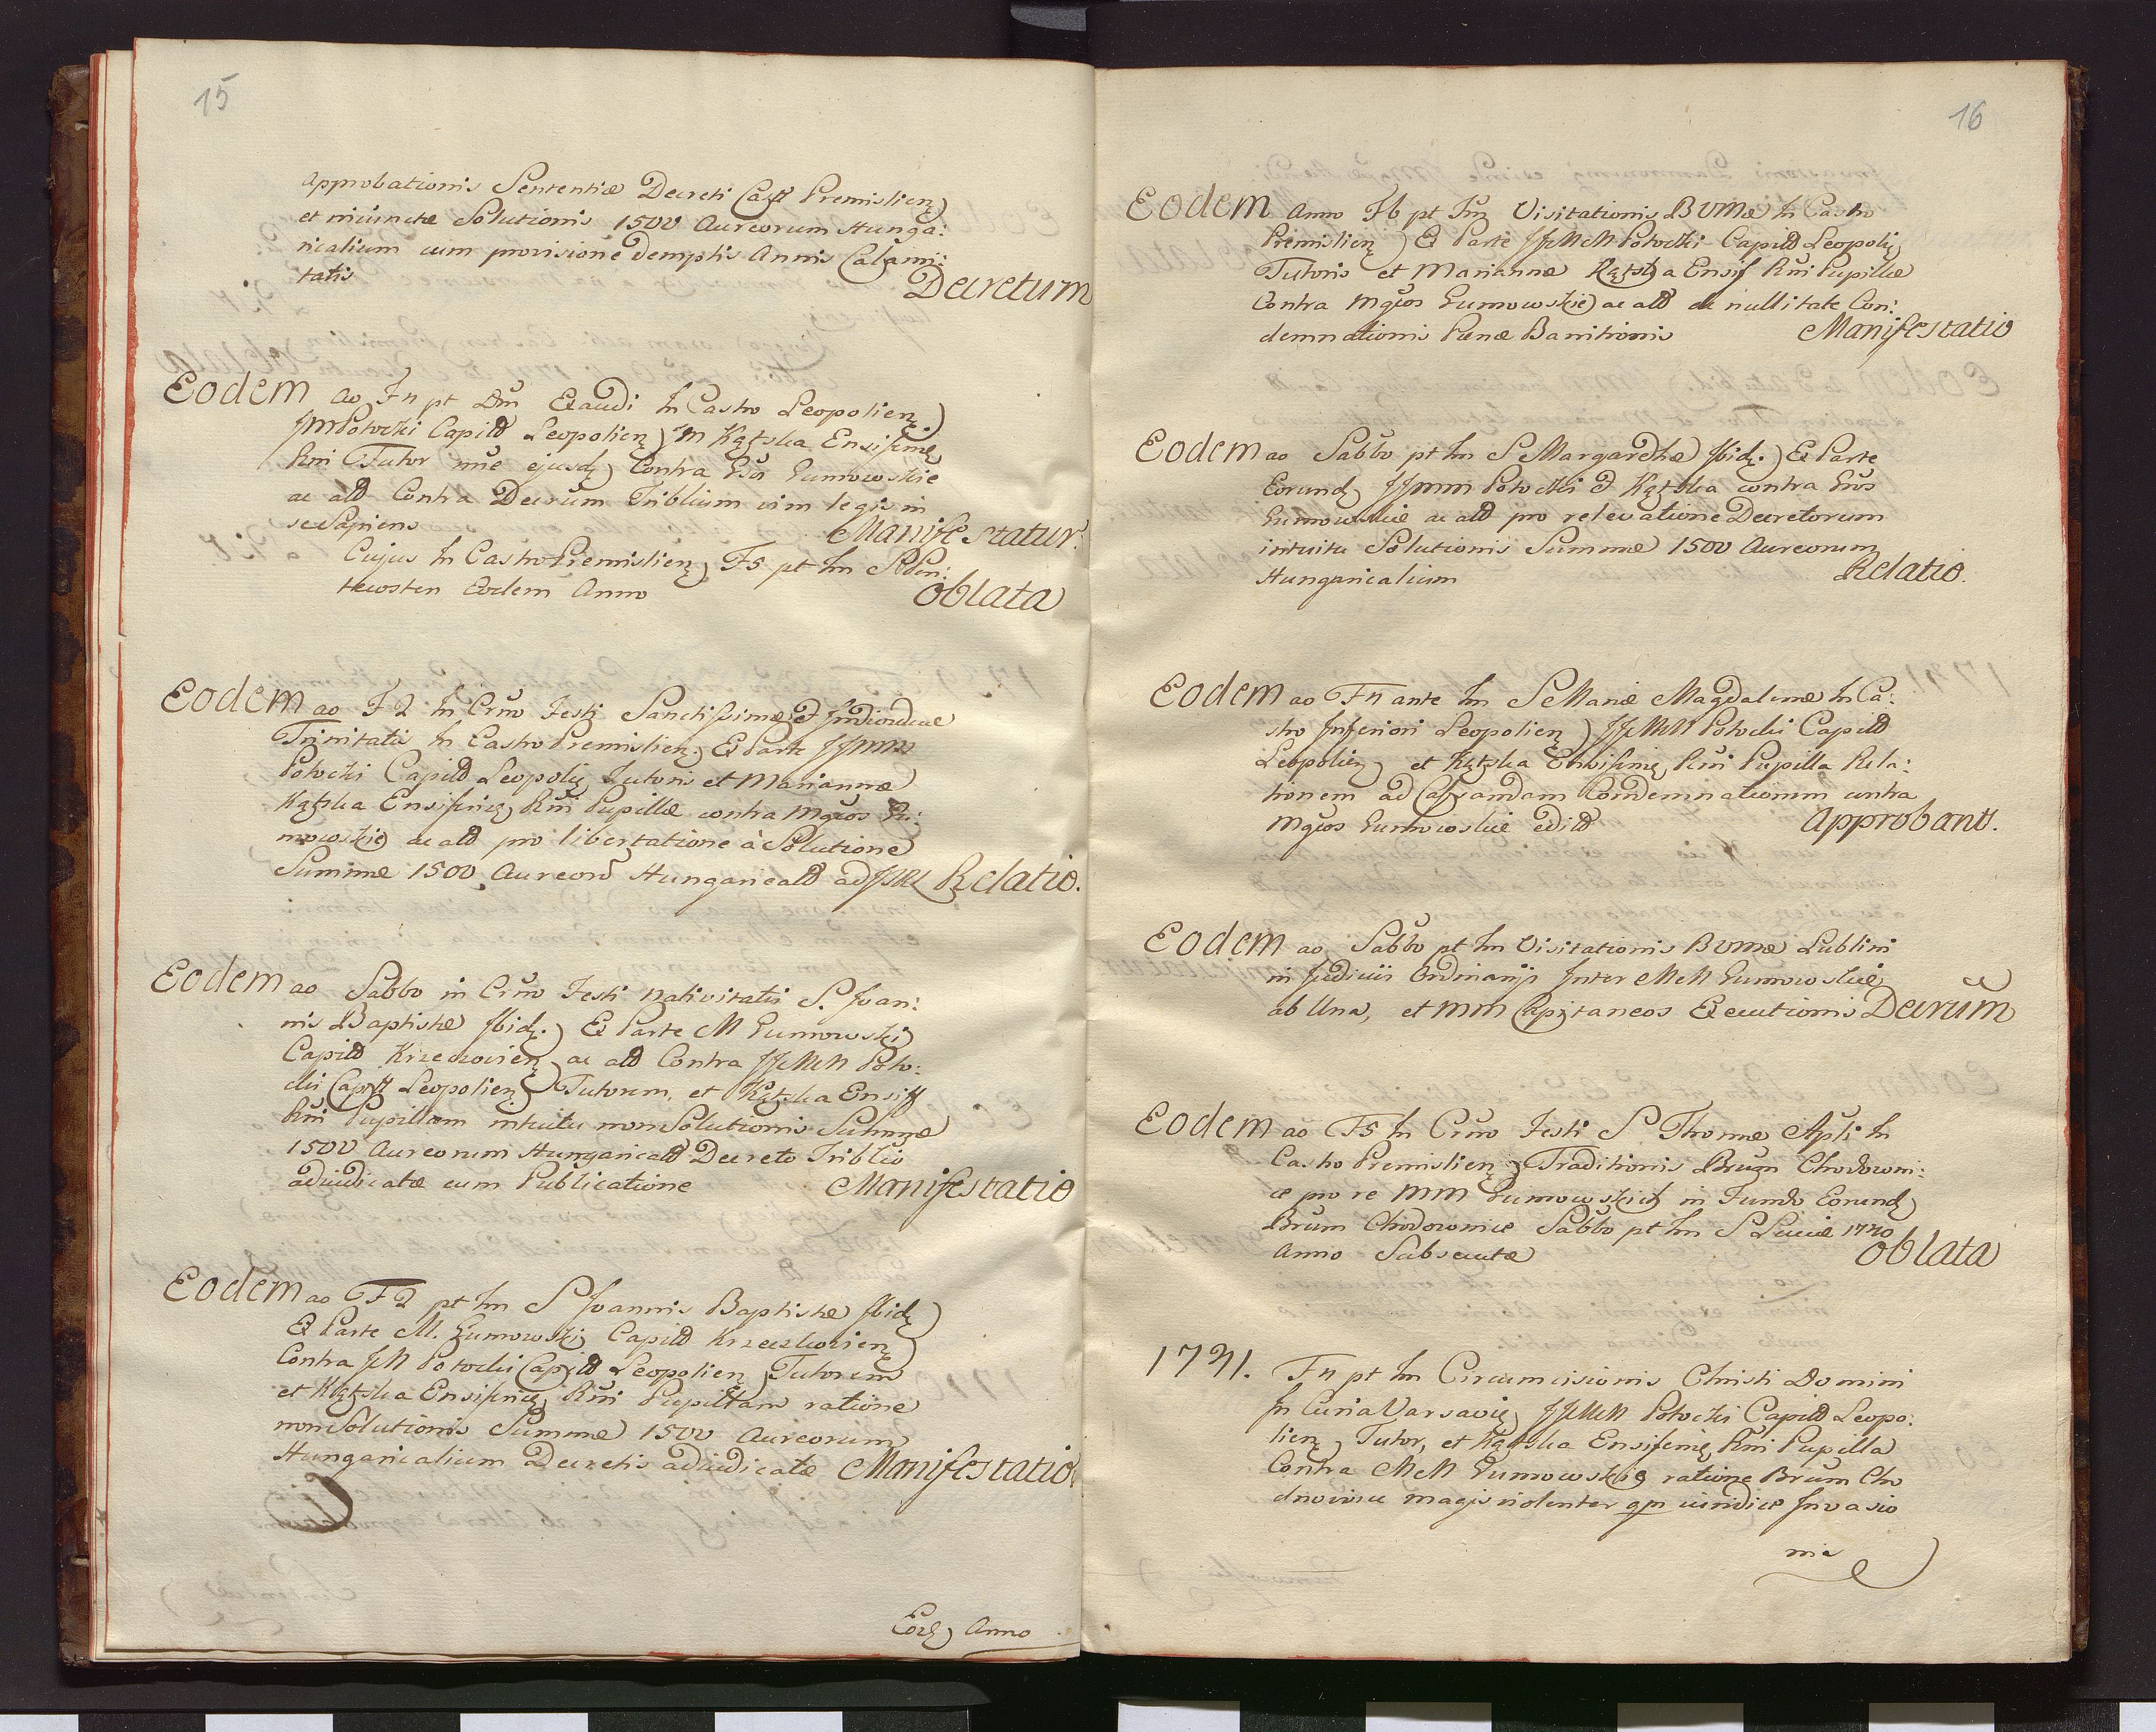 15
Approbationis Sententiæ Decreti Castr Premislien
et iniunctæ Solutionis 1500 Aureorum Hunga:
ricalium cum provisione demptis Annis Calami:
tatis Decretum
Eodem ao Fn pt Dm Exaudi In Castro Leopolien.)
Potocki Capitd Leopolien) M Kątska Ensif
Rni Tutor ejusd) Contra Humowskie
ac ald Contra Decrum Triblium vim legis in
se Sapiens Manifestatur.
Cujus In Castro Premislien) F5 pt Im S Pen:
thecosten Eodem Anno Oblata
Eodem ao F2 In Crno Festi Sanctissimæ & Individuæ
Trinitatis In Castro Premislien) Ex Parte JJmm
Potocki Capitd Leopolię Tutoris et Mariannæ
Kątska Ensif Rni Pupillæ contra Mgcos Hu:
mowskie) ac ald pro libertatione à Solutione
Summæ 1500 Aureord Hungaricald ad Relatio.
Eodem ao Sabbo in Crno Festi Nativitatis S. Joan:
nis Baptistæ Ibid.) Ex Parte M Humowski)
Capitd Krzeczowien) ac ald Contra Poto:
cki Captt Leopolien) Tutorem, et Kątska Ensiff
Rni Pupillam intuitu non Solutionis Summæ
1500 Aureorum Hungaricald Decreto Triblio
adiudicatæ cum Publicatione Manifestatio
Eodem ao F2 pt Im S Joannis Baptistæ Ibid)
Ex Parte M. Humowski) Capitd Krzeczowien)
Contra Potocki Captd Leopolien) Tutorem
et Kątska Ensif Rni Pupillam ratione
non Solutionis Summæ 1500 Aureorum
Hungaricalium Decretis adiudicatæ Manifestatio
Eod) Anno
16
Eodem Anno F6 pt Im Visitationis BVMæ In Castro
Premislien) Ex Parte Potocki Capitd Leopolię
Tutoris et Mariannæ Kątska Ensif Rni Pupillæ
Contra Mgcos Humowskie) ac ald de nullitate Con:
demnationis Pænæ Banitionis Manifestatio
Eodem ao Sabbo pt Im S Margarethæ Ibid.) Ex Parte
Eorund) JJmm Potocki & Kątska contra
Humowskie ac ald pro relevatione Decretorum
intuitu Solutionis Summæ 1500 Aureorum
Hungaricalium Relatio.
Eodem ao Fn ante Im S Mariæ Magdalenæ In Ca:
stro Inferiori Leopolien) Potocki Capitd
Leopolien) et Kątska Ensif Rni Pupilla Rela:
tionem ad Cassandam Condemnationem contra
Mgcos Humowskie editd Approbant.
Eodem ao Sabbo pt Im Visitationis BVMæ Lublini
in Judiciis Ordinarijs Inter Humowskie
ab Una, et MM Capitaneos Executionis Decrum
Eodem ao F5 In Crno Festi S Thomæ Apli In
Castro Premislien) Traditionis Brum Chodowni:
cæ pro re MM Humowskich in Fundo Eorund)
Brum Chodownicæ Sabbo pt Im S Luciæ 1720
Anno Subsecutæ Oblata
1721. Fn pt Im Circumcisionis Christi Domini
In Curia Varsavię Potocki Capitd Leopo:
lien) Tutor, et Kątska Ensif Rni Pupilla
Contra Humowskie ratione Brum Cho
dnovicæ magis violenter qm iuridice Invasio
nia